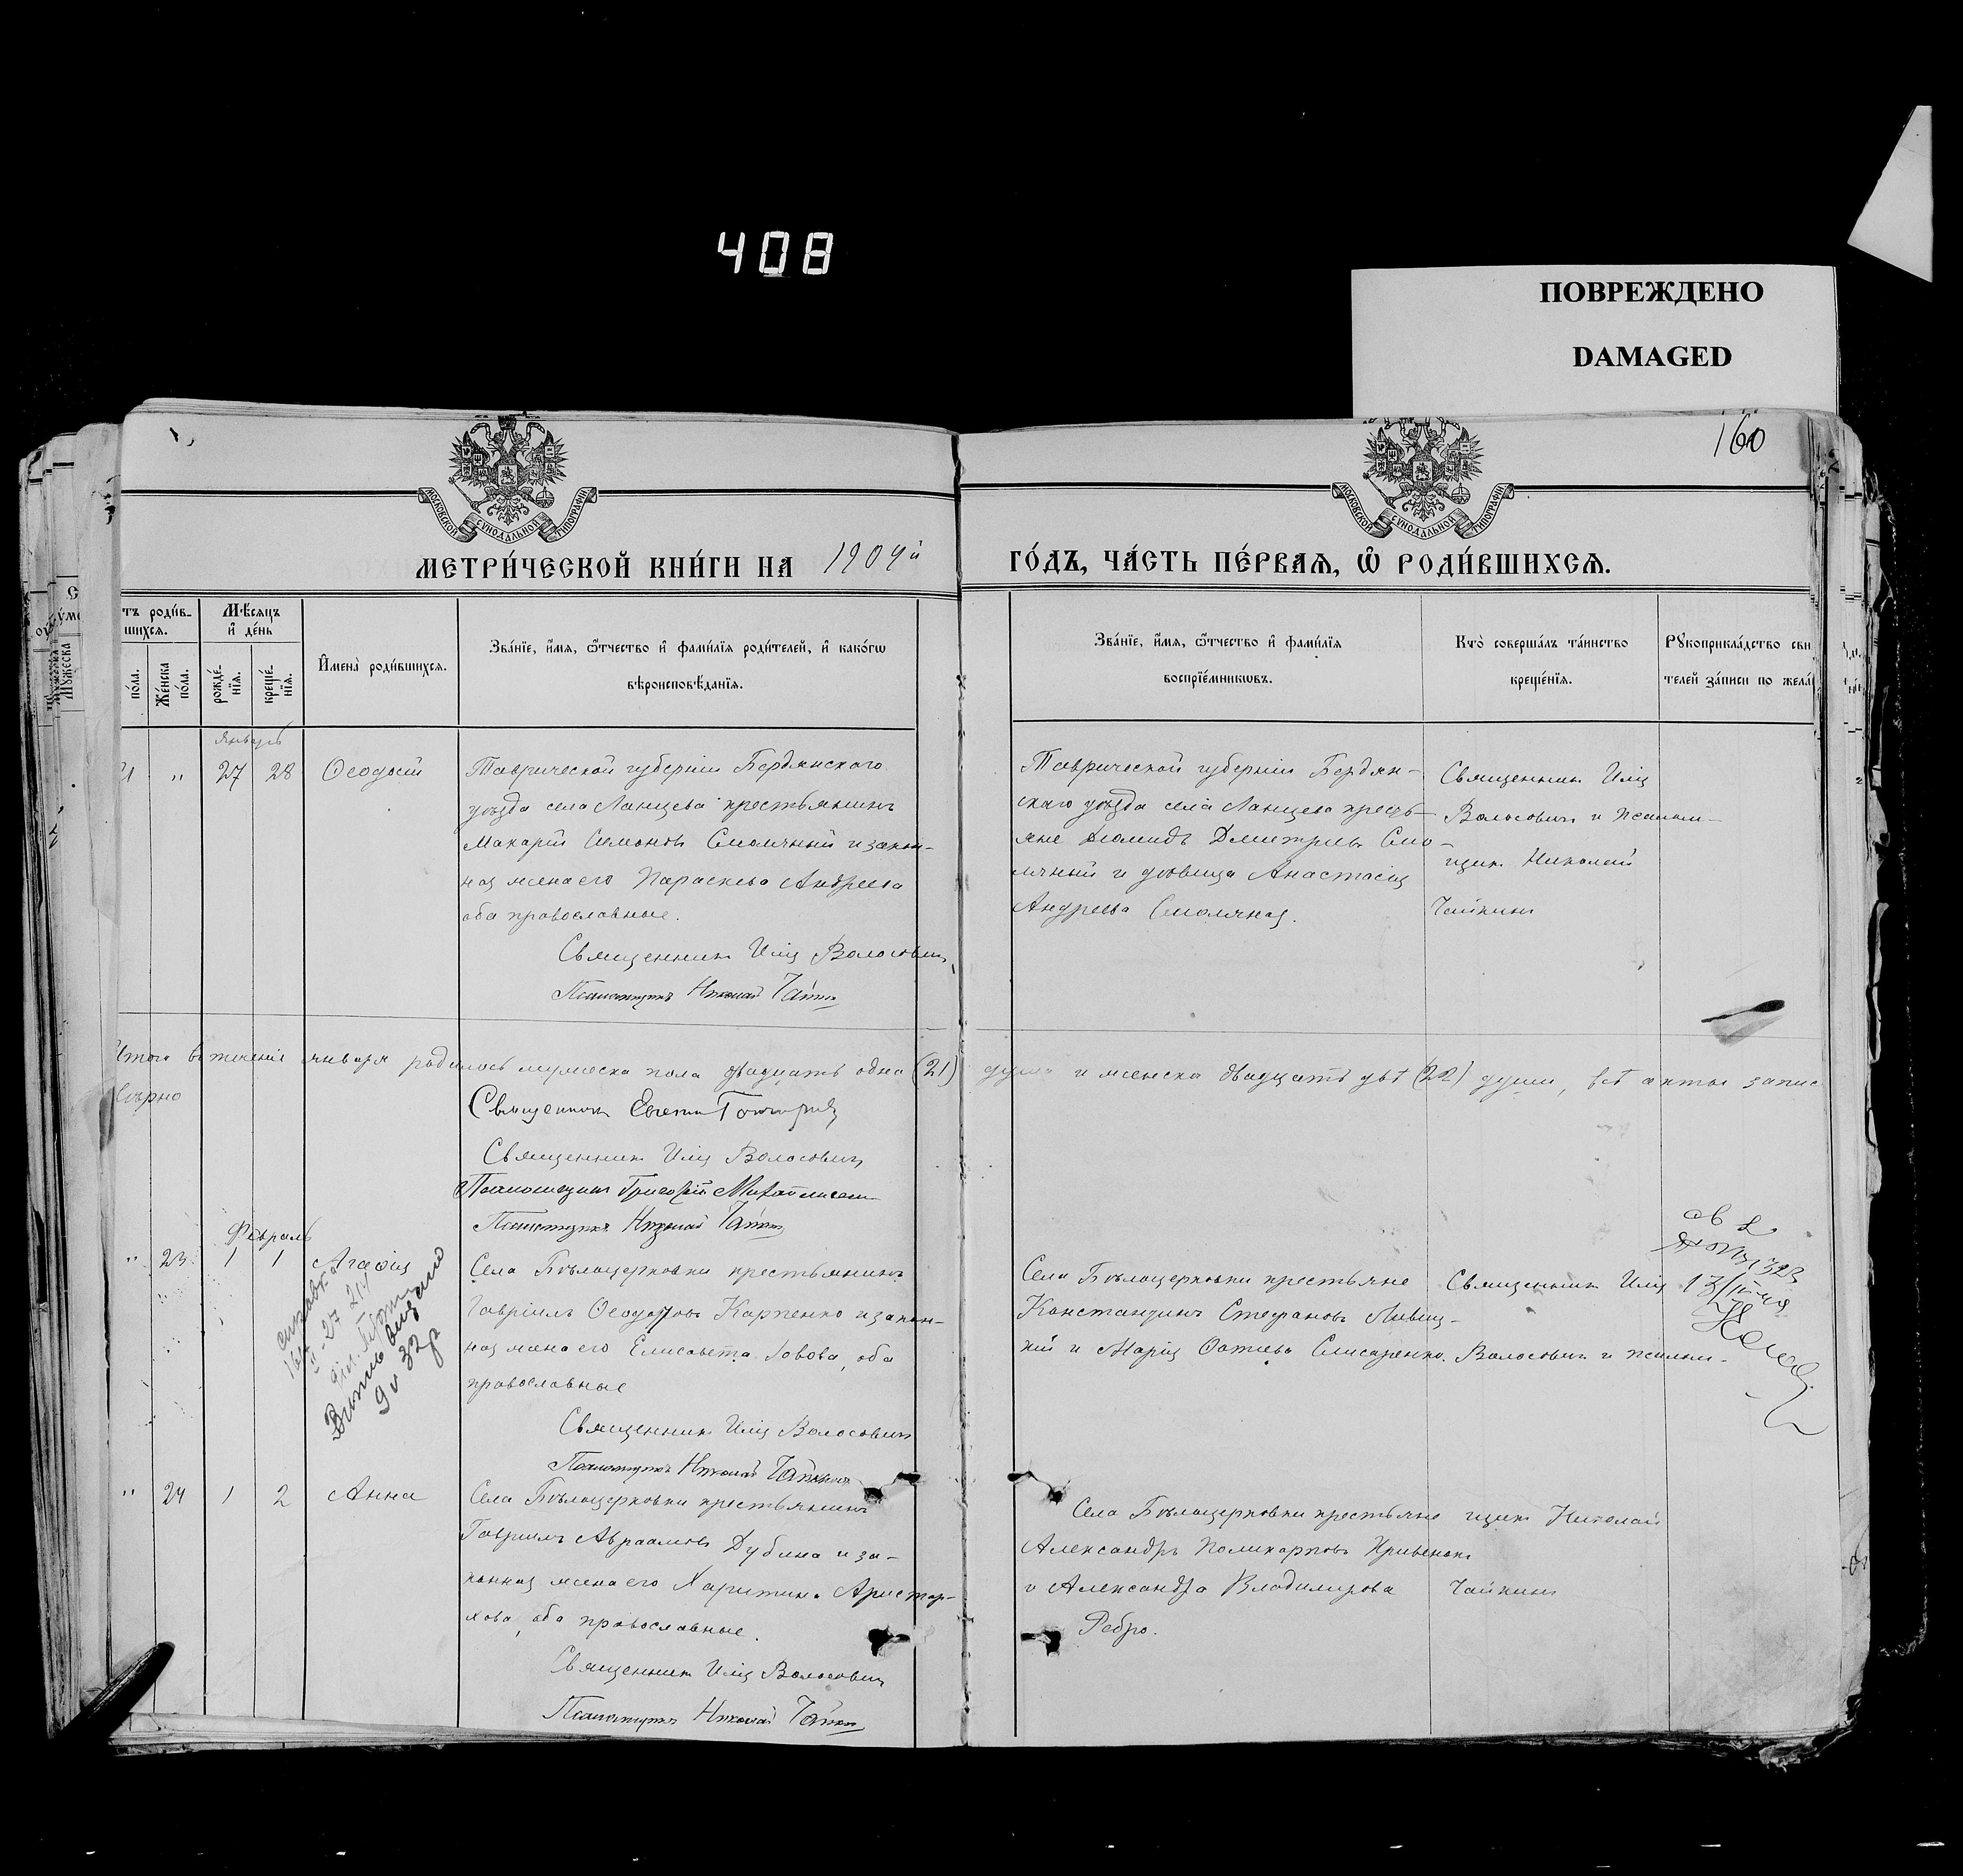 408
ПОВРЕЖДЕНО
DAMAGED
160
МОСКОВСКОЙ СѴНОДАЛЬНОЙ ТИПОГРАФІИ
МОСКОВСКОЙ СѴНОДАЛЬНОЙ ТИПОГРАФІИ
МЕТРИ́ЧЕСКОЙ КНИ́ГИ НА 1904й ГО́ДЪ, ЧА́СТЬ ПЕ́РВАѦ, Ѡ҆ РОДИ́ВШИХСѦ.
тъ роди́в-
шихсѧ.
Мѣ́сѧцъ
и҆ де́нь
по́ла.
Же́нска
по́ла.
рожде́-
нїѧ.
креще́-
нїѧ.
И҆мена̀ роди́вшихсѧ.
Зва́нїе, и҆́мѧ, ѻ҆́тчество и҆ фами́лїѧ роди́телей, и҆ како́гѡ
вѣроисповѣ́данїѧ.
Зва́нїе, и҆́мѧ, ѻ҆́тчество и҆ фами́лїѧ
воспрїе́мникѡвъ.
Кто̀ соверша́лъ та́инство
креще́нїѧ.
Рꙋкоприкла́дство сви
телей за́писи по жела́
Январь
21 " 27 28 Ѳеодосій
Таврической губерніи Бердянскаго
уѣзда села Ланцева крестьянинъ
Макарій Симоновъ Смолчный и закон-
ная жена его Параскева Андреева
оба православные.
Священникъ Илія Волосовичъ
Псаломщикъ Николай Чайкинъ
Таврической губерніи Бердян-
скаго уѣзда села Ланцева кресть-
яне Діомидъ Дмитріевъ Смо-
лчный и дѣвица Анастасія
Андреева Смоляная.
Священникъ Илія
Волосовичъ и псалом-
щикъ Николай
Чайкинъ
Итого въ теченіе января родилось мужеска пола двадцать одна (21) душа и женска двадцать двѣ (22) души, всѣ акты запис
вѣрно
Священникъ Евгеній
Священникъ Илія Волосовичъ
Псаломщикъ Григорій
Псаломщикъ Николай Чайкинъ
Февраль
" 23 1 1 Агаѳія
Села Бѣлоцерковки крестьянинъ
Гавріилъ Ѳеодоровъ Карпенко и закон-
ная жена его Елисавета Іовова, оба
православные
Священникъ Илія Волосовичъ
Псаломщикъ Николай Чайкинъ
Села Бѣлоцерковки крестьяне
Константинъ Стефановъ Ливиц-
кій и Марія Фотіева Слисаренко.
Священникъ Илія
Волосовичъ и псалом-
" 24 1 2 Анна
Села Бѣлоцерковки крестьянинъ
Гавріилъ Авраамовъ Дубина и за-
конная жена его Харитина Аристар-
хова, оба православные.
Священникъ Илія Волосовичъ
Псаломщикъ Николай Чайкинъ
Села Бѣлоцерковки крестьяне
Александръ Поликарповъ Кривенокъ
и Александра Владимирова
Ребро.
щикъ Николай
Чайкинъ